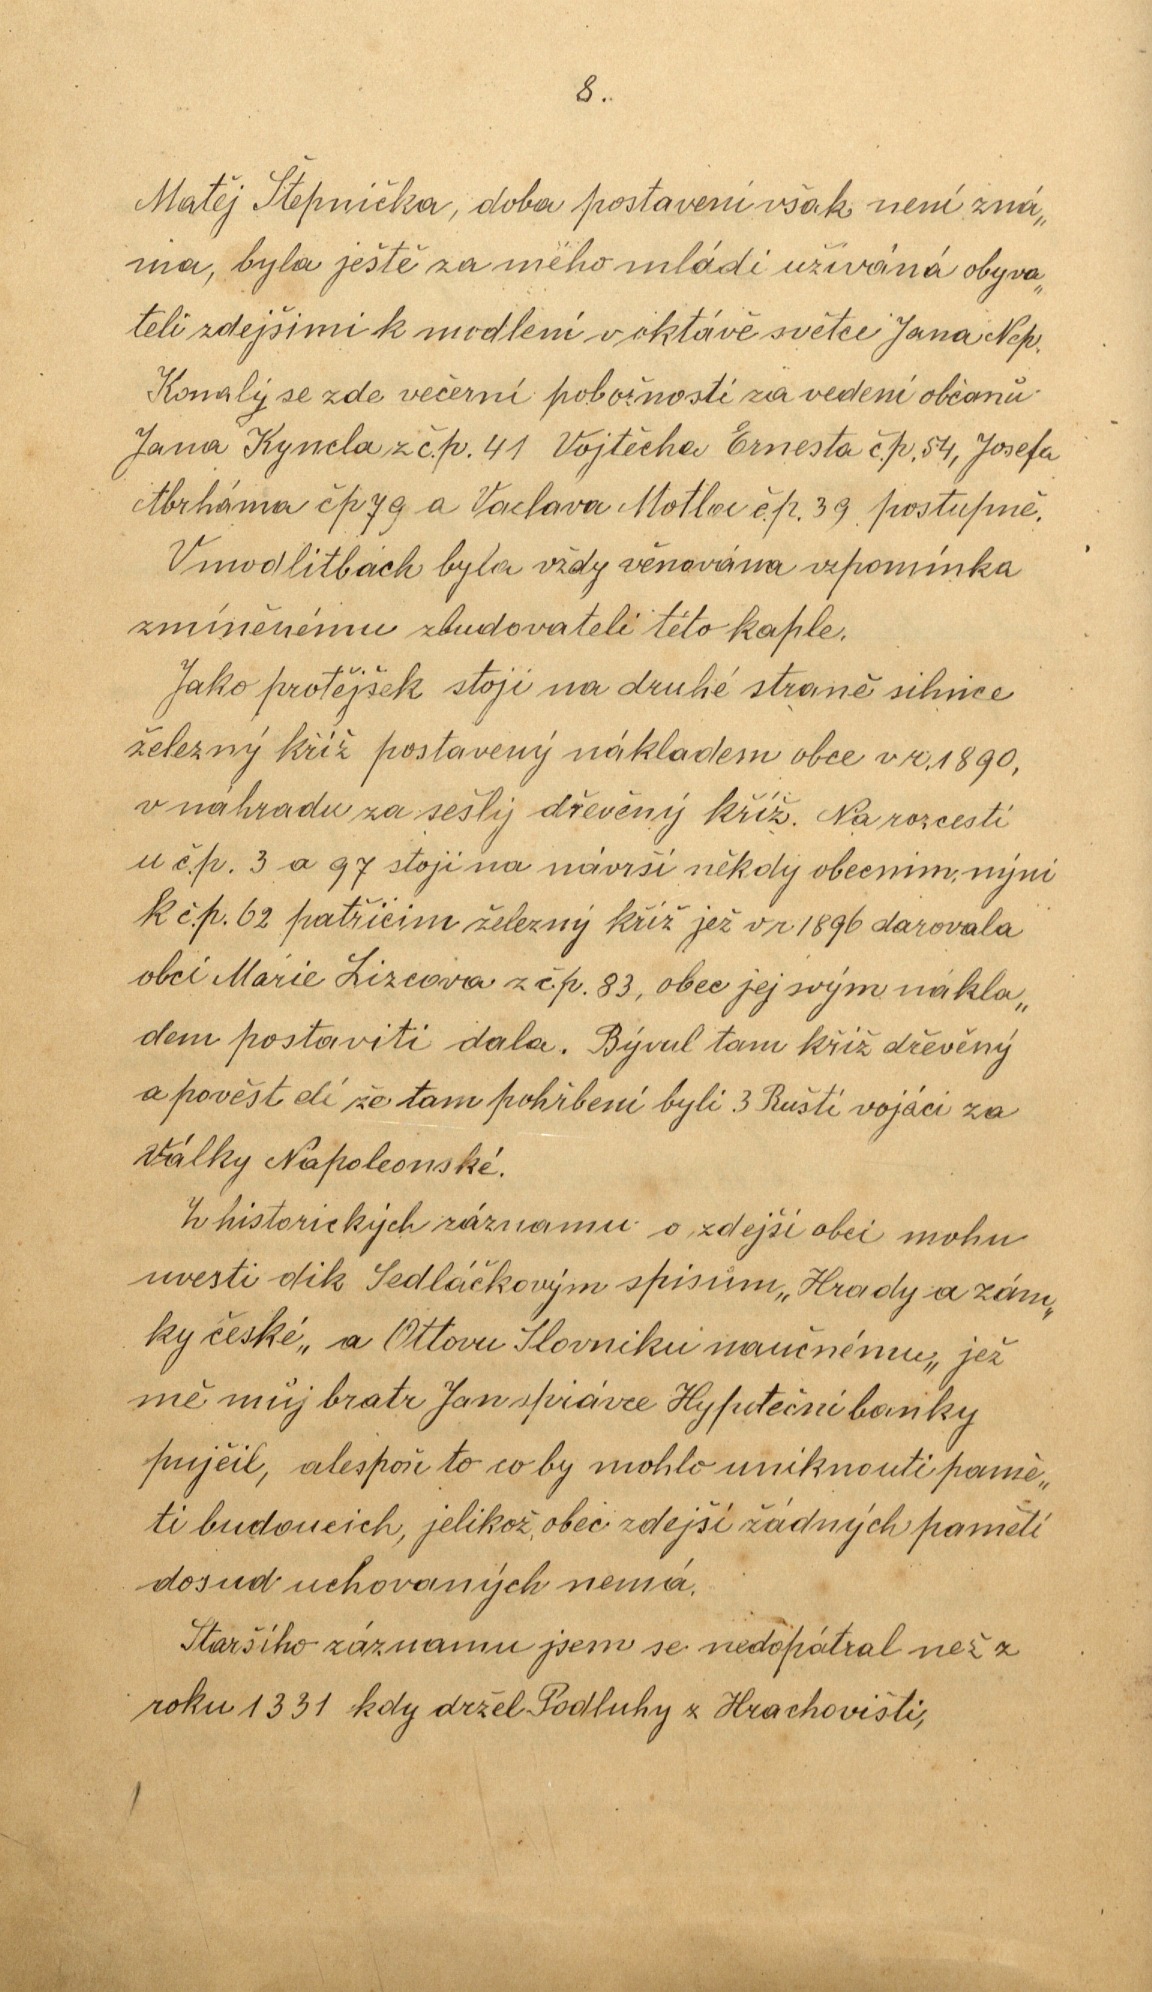 8.
Matěj Štěpnička, doba postavení však není zná„
ma, byla ještě za mého mládí užíváná obyva„
teli zdejšimi k modlení v oktávě světce Jana Nep.
Konaly se zde večerní pobožnosti za vedení občanů
Jana Kyncla z č.p. 41 Vojtěcha Ernesta č.p. 54, Josefa
Abrháma čp 79 a Vaclava Motla č.p. 39 postupně.
V modlitbách byla vždy věnována vzpomínka
zmíněnému zbudovateli této kaple.
Jako protějšek stojí na druhé straně silnice
železný kříž postavený nákladem obce v r. 1890,
v náhradu za sešlý dřevěný kříž. Na rozcestí
u č.p. 3 a 97 stojí na návrší někdy obecním, nýní
k č.p. 62 patřícim železný kříž jež v r 1896 darovala
obci Marie Lizcova z č.p. 83, obec jej svým nákla„
dem postaviti dala. Býval tam kříž dřevěný
a pověst dí že tam pohřbeni byli 3 Rušti vojáci za
Války Napoleonské.
Z historických záznamu o zdejší obci mohu
uvesti dík Sedláčkovým spisům „Hrady a zám„
ky české„ a Ottovu Slovniku naučnému„ jež
mě můj bratr Jan správce Hypoteční banky
pujčil, alespoň to co by mohlo uniknouti pamě„
ti budoucich, jelikož obec zdejší žádných pamětí
dosud uchovaných nemá.
Staršího záznamu jsem se nedopátral než z
roku 1331 kdy držel Podluhy z Hrachovišti,